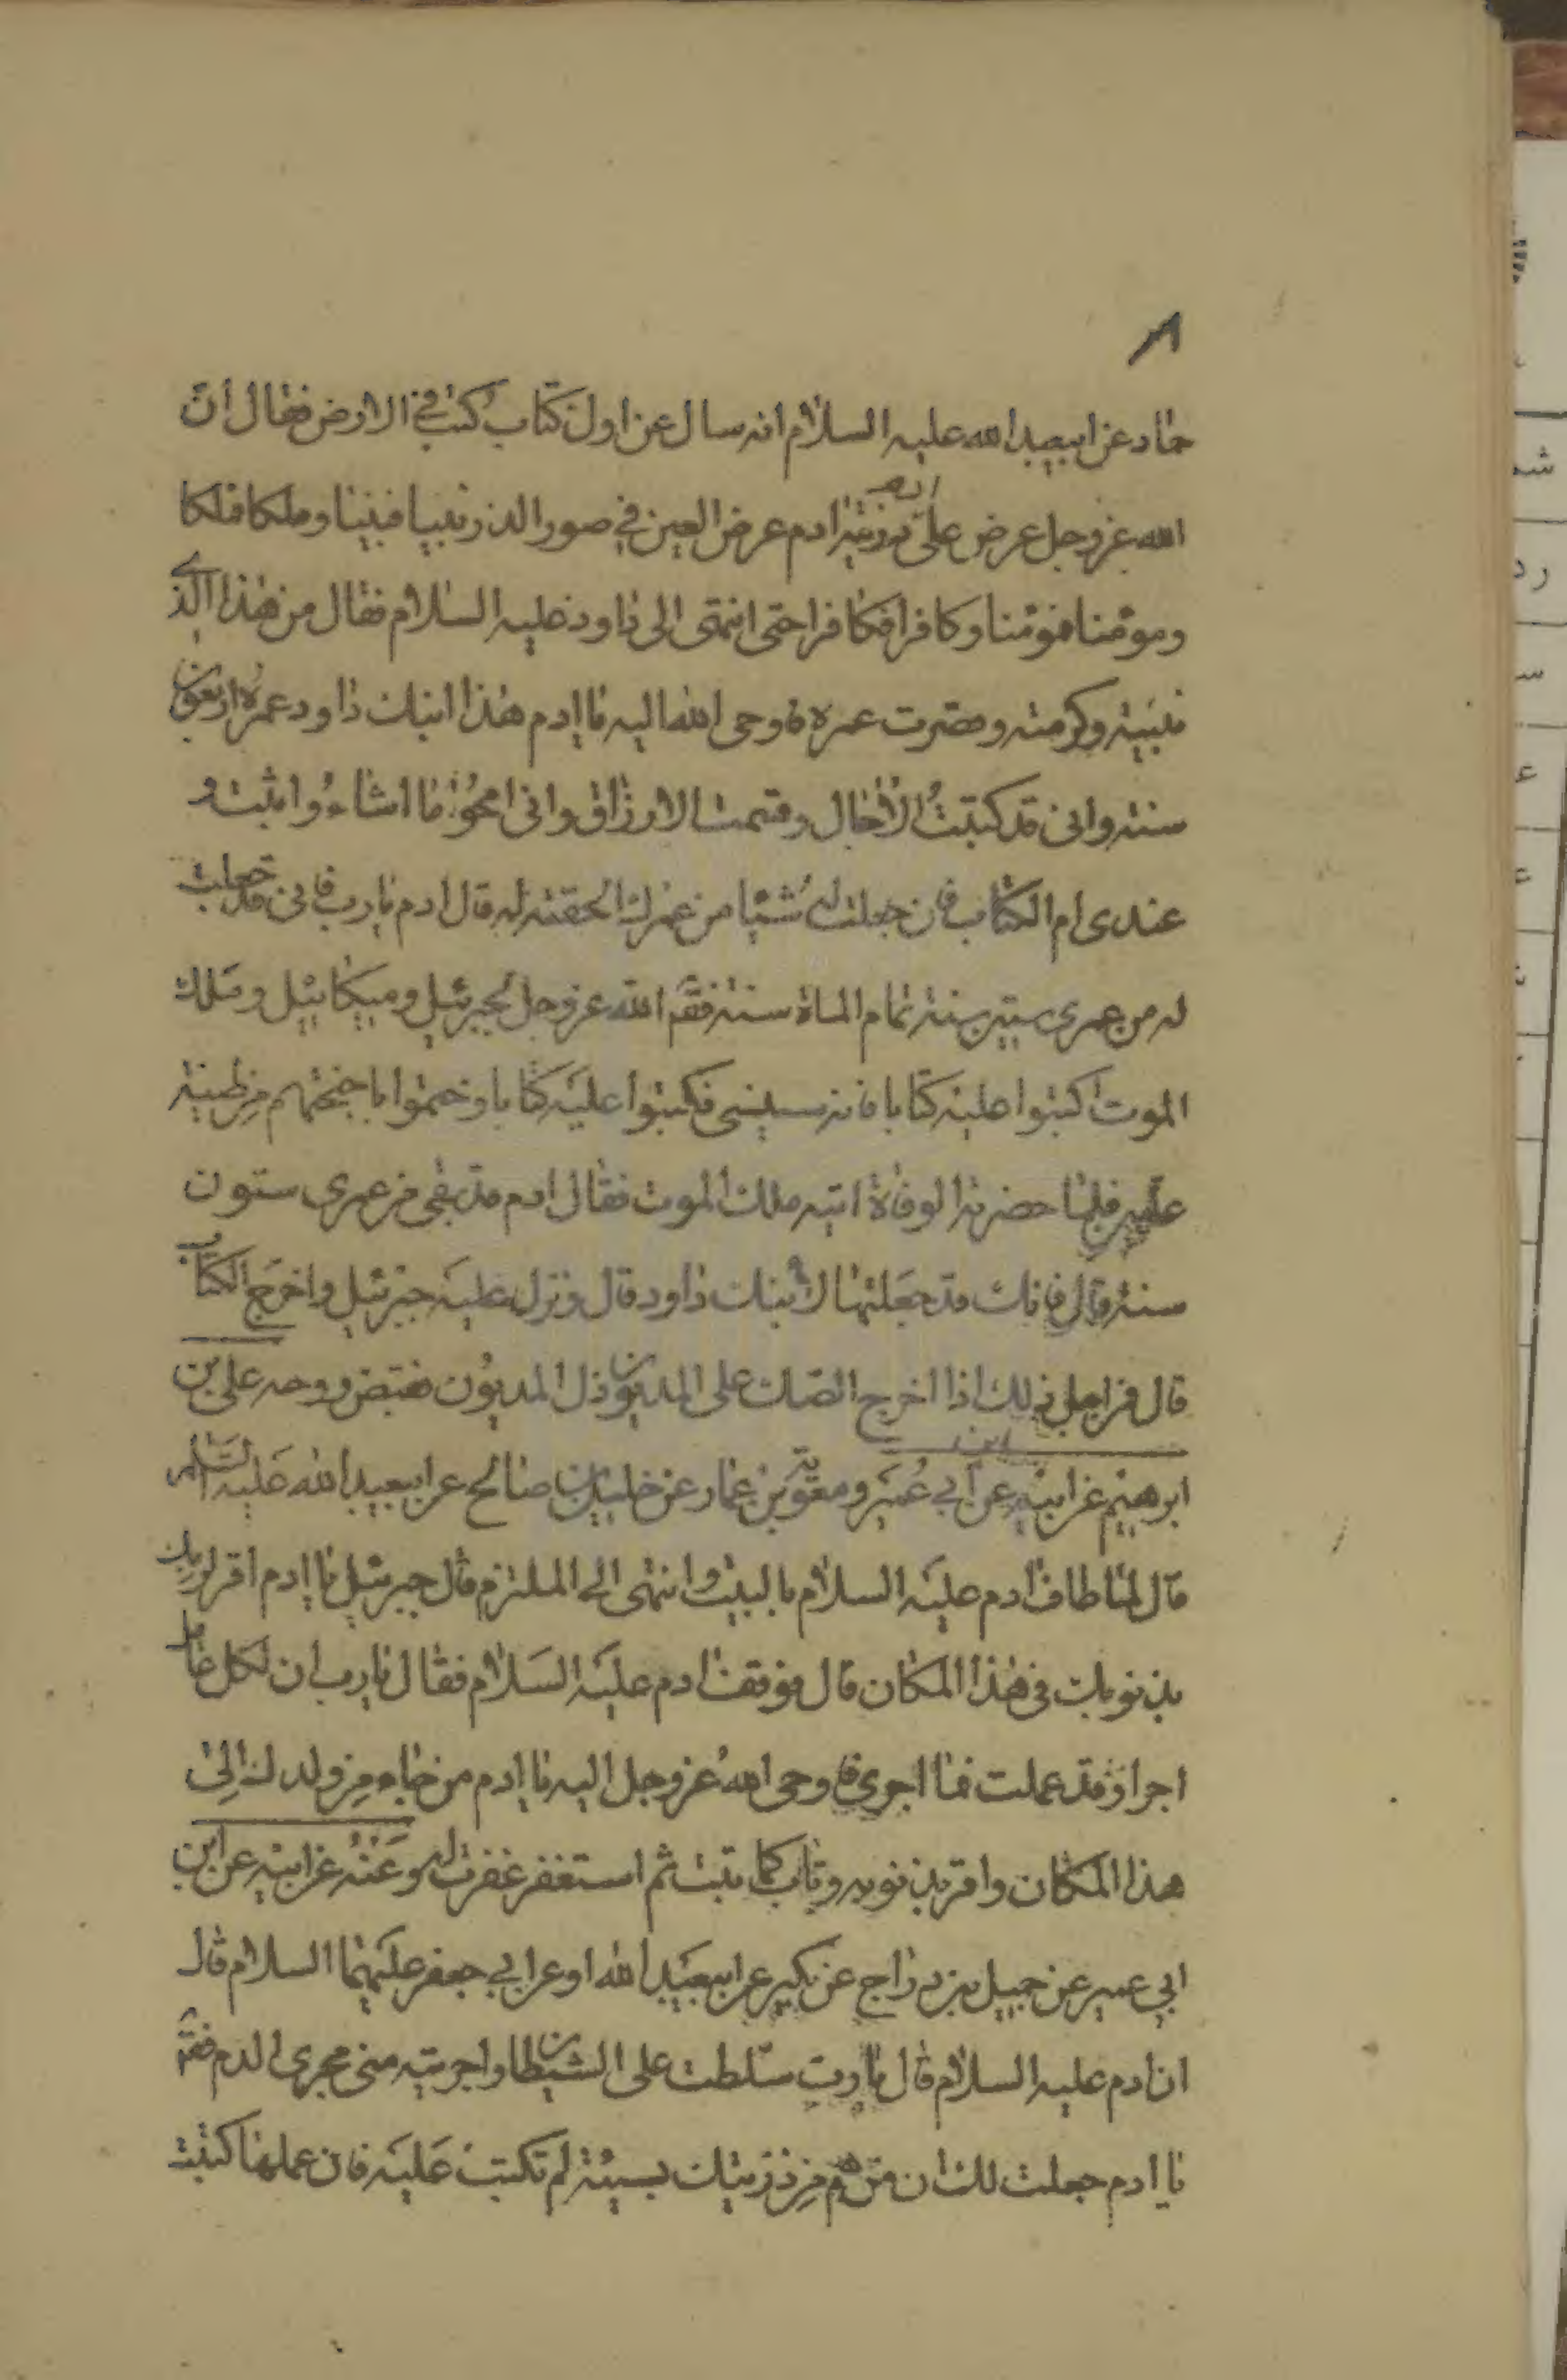 ٨
حماد عن ابيعبد الله عليه السلام انه سال عن اول كتاب كتب في الارض فقال انّ
الله عز وجل عرض على ادم ذريته عرض العين في صور الذر نبيا فنبيا وملكا فملكا
ومومنا فمومنا وكافرا فكافرا حتى انتهى الى داود عليه السلام فقال من هذا الذي
نبيته وكرمته وقصرت عمره فاوحى الله اليه يا ادم هذا ابنك داود عمره اربعون
سنته وانى قد كتبت الاجال وقسمت الارزاق وانى امحو ما اشاء واثبت و
عندى ام الكتاب فان جعلت له شيئا من عمرك الحقته له قال ادم يا رب فانى قد جعلت
له من عمرى ستين سنة تمام الماة سنة فقال الله عز وجل لجبرئيل وميكائيل وملك
الموت اكتبوا عليه كتابا فانه سينسى فكتبوا عليه كتابا وختموا باجنحتهم من طينة
عليين فلما حضرته الوفاة اتيه ملك الموت فقال ادم قد بقى من عمرى ستون
سنة قال فانك قد جعلتها لابنك داود قال ونزل عليه جبرئيل واخرج الكتاب
قال فمن اجل ذلك اذا اخرج الصك على المديون ذل المديون فقبض روحه على بن
ابرهيم عن ابيه عن ابن ابي عمير ومعوية بن عمار عن خالد بن صالح عن ابيعبد الله عليه السلام
قال لما طاف ادم عليه السلام بالبيت وانتهى الى الملتزم قال جبرئيل يا ادم اقر لربك
بذنوبك في هذا المكان قال فوقف ادم عليه السلام فقال يا رب ان لكل عامل
اجرا وقد عملت فما اجرى فاوحى الله عز وجل اليه يا ادم من جاء من ولدك الى
هذا المكان واقر بذنوبه وتاب كما تبت ثم استغفر غفرت له وعنه عن ابيه عن ابن
ابي عمير عن جميل بن دراج عن بكير عن ابيعبد الله او عن ابي جعفر عليهما السلام قال
ان ادم عليه السلام قال يا رب سلطت على الشيطان واجريته منى مجرى الدم فقال
يا ادم جعلت لك ان من هم من ذريتك بسيئة لم تكتب عليه فان عملها كتبت